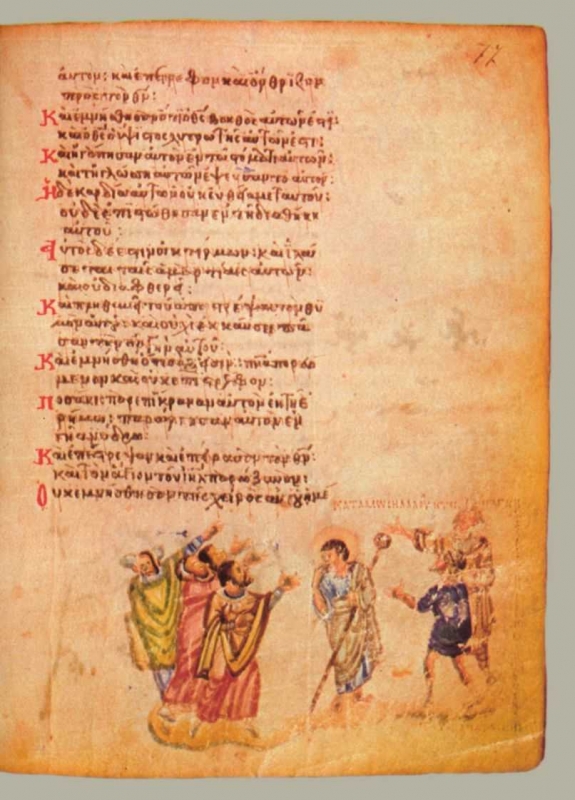 77
αὐτόν: καὶ ἐπέστρεφον καὶ ὤρθριζον
πρὸς τὸν θν:
Καὶ ἐμνήσθησαν ὅτι ὁ θς βοηθὸς αὐτῶν ἐστι:
καὶ ὁ θς ὁ ὕψιστος λυτρωτὴς αὐτῶν ἐστι:
Καὶ ἠγάπησαν αὐτὸν ἐν τῷ στόματι αὐτῶν:
καὶ τῇ γλώσσῃ αὐτῶν ἐψεύσαντο αὐτόν:
Ἡ δὲ καρδία αὐτῶν οὐκ εὐθεῖα μετ' αὐτοῦ:
οὐδὲ ἐπιστώθησαν ἐν τῇ διαθήκῃ
αὐτοῦ:
Αὐτὸς δέ ἐστιν οἰκτίρμων: καὶ ἱλά
σεται ταῖς ἁμαρτίαις αὐτῶν:
καὶ οὐ διαφθερεῖ:
Καὶ πληθυνεῖ τοῦ ἀποστρέψαι τὸν θυ
μὸν αὐτοῦ: καὶ οὐχὶ ἐκκαύσει πᾶ
σαν τὴν ὀργὴν αὐτοῦ:
Καὶ ἐμνήσθη ὅτι σάρξ εἰσιν: πνα πορευό
μενον καὶ οὐκ ἐπιστρέφον:
Ποσάκις παρεπίκραναν αὐτὸν ἐν τῇ ἐ
ρήμῳ: παρώργισαν αὐτὸν ἐν
γῇ ἀνύδρῳ:
Καὶ ἐπέστρεψαν καὶ ἐπείρασαν τὸν θν:
καὶ τὸν ἅγιον τοῦ ιηλ παρώξυναν:
Οὐκ ἐμνήσθησαν τῆς χειρὸς αὐτοῦ ἡμέ